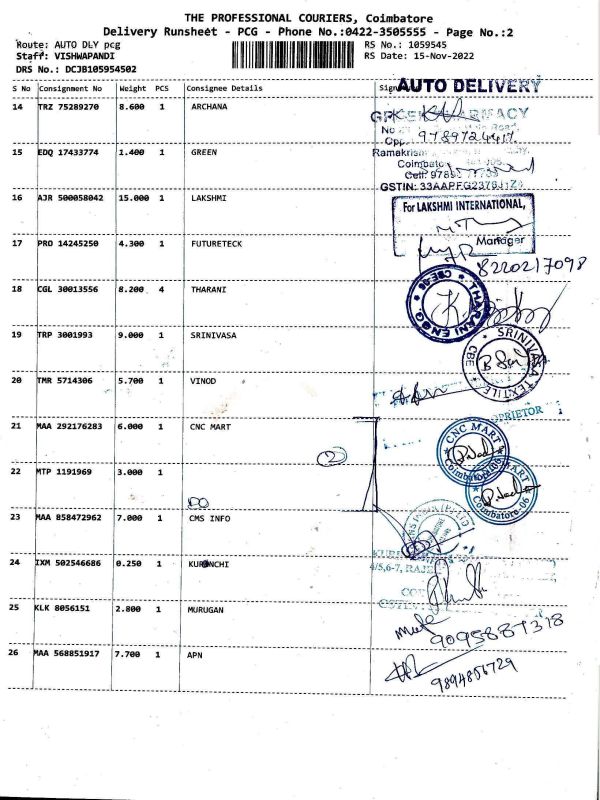 THE PROFESSIONAL COURIERS, Coimbatore
Delivery Runsheet - PCG - Phone No.:0422-3505555 - Page No.:2
Route: AUTO DLY pcg
RS No.: 1059545
Staff: VISHWAPANDI
RS Date: 15-Nov-2022
DRS No.: DCJB105954502
S No Consignment No Weight PCS Consignee Details
AUTO DELIVERY
14 TRZ 75289270 8.600 1 ARCHANA
15 EDQ 17433774 1.400 1 GREEN
Coimbatore
GSTIN:
16 AJR 500058042 15.000 1 LAKSHMI
For LAKSHMI INTERNATIONAL,
Manager
17 PRO 14245250 4.300 1 FUTURETECK
8220217098
18 CGL 30013556 8.200 4 THARANI
THARANI ENGG
CBE-06
19 TRP 3001993 9.000 1 SRINIVASA
SRINIVASA TEXTILE
CBE
20 TMR 5714306 5.700 1 VINOD
21 MAA 292176283 6.000 1 CNC MART
CNC MART
Coimbatore-06
2
22 MTP 1191969 3.000 1
DO
Coimbatore-06
23 MAA 858472962 7.000 1 CMS INFO
24 IXM 502546686 0.250 1 KURINCHI
25 KLK 8056151 2.800 1 MURUGAN
26 MAA 568851917 7.700 1 APN
9894856729